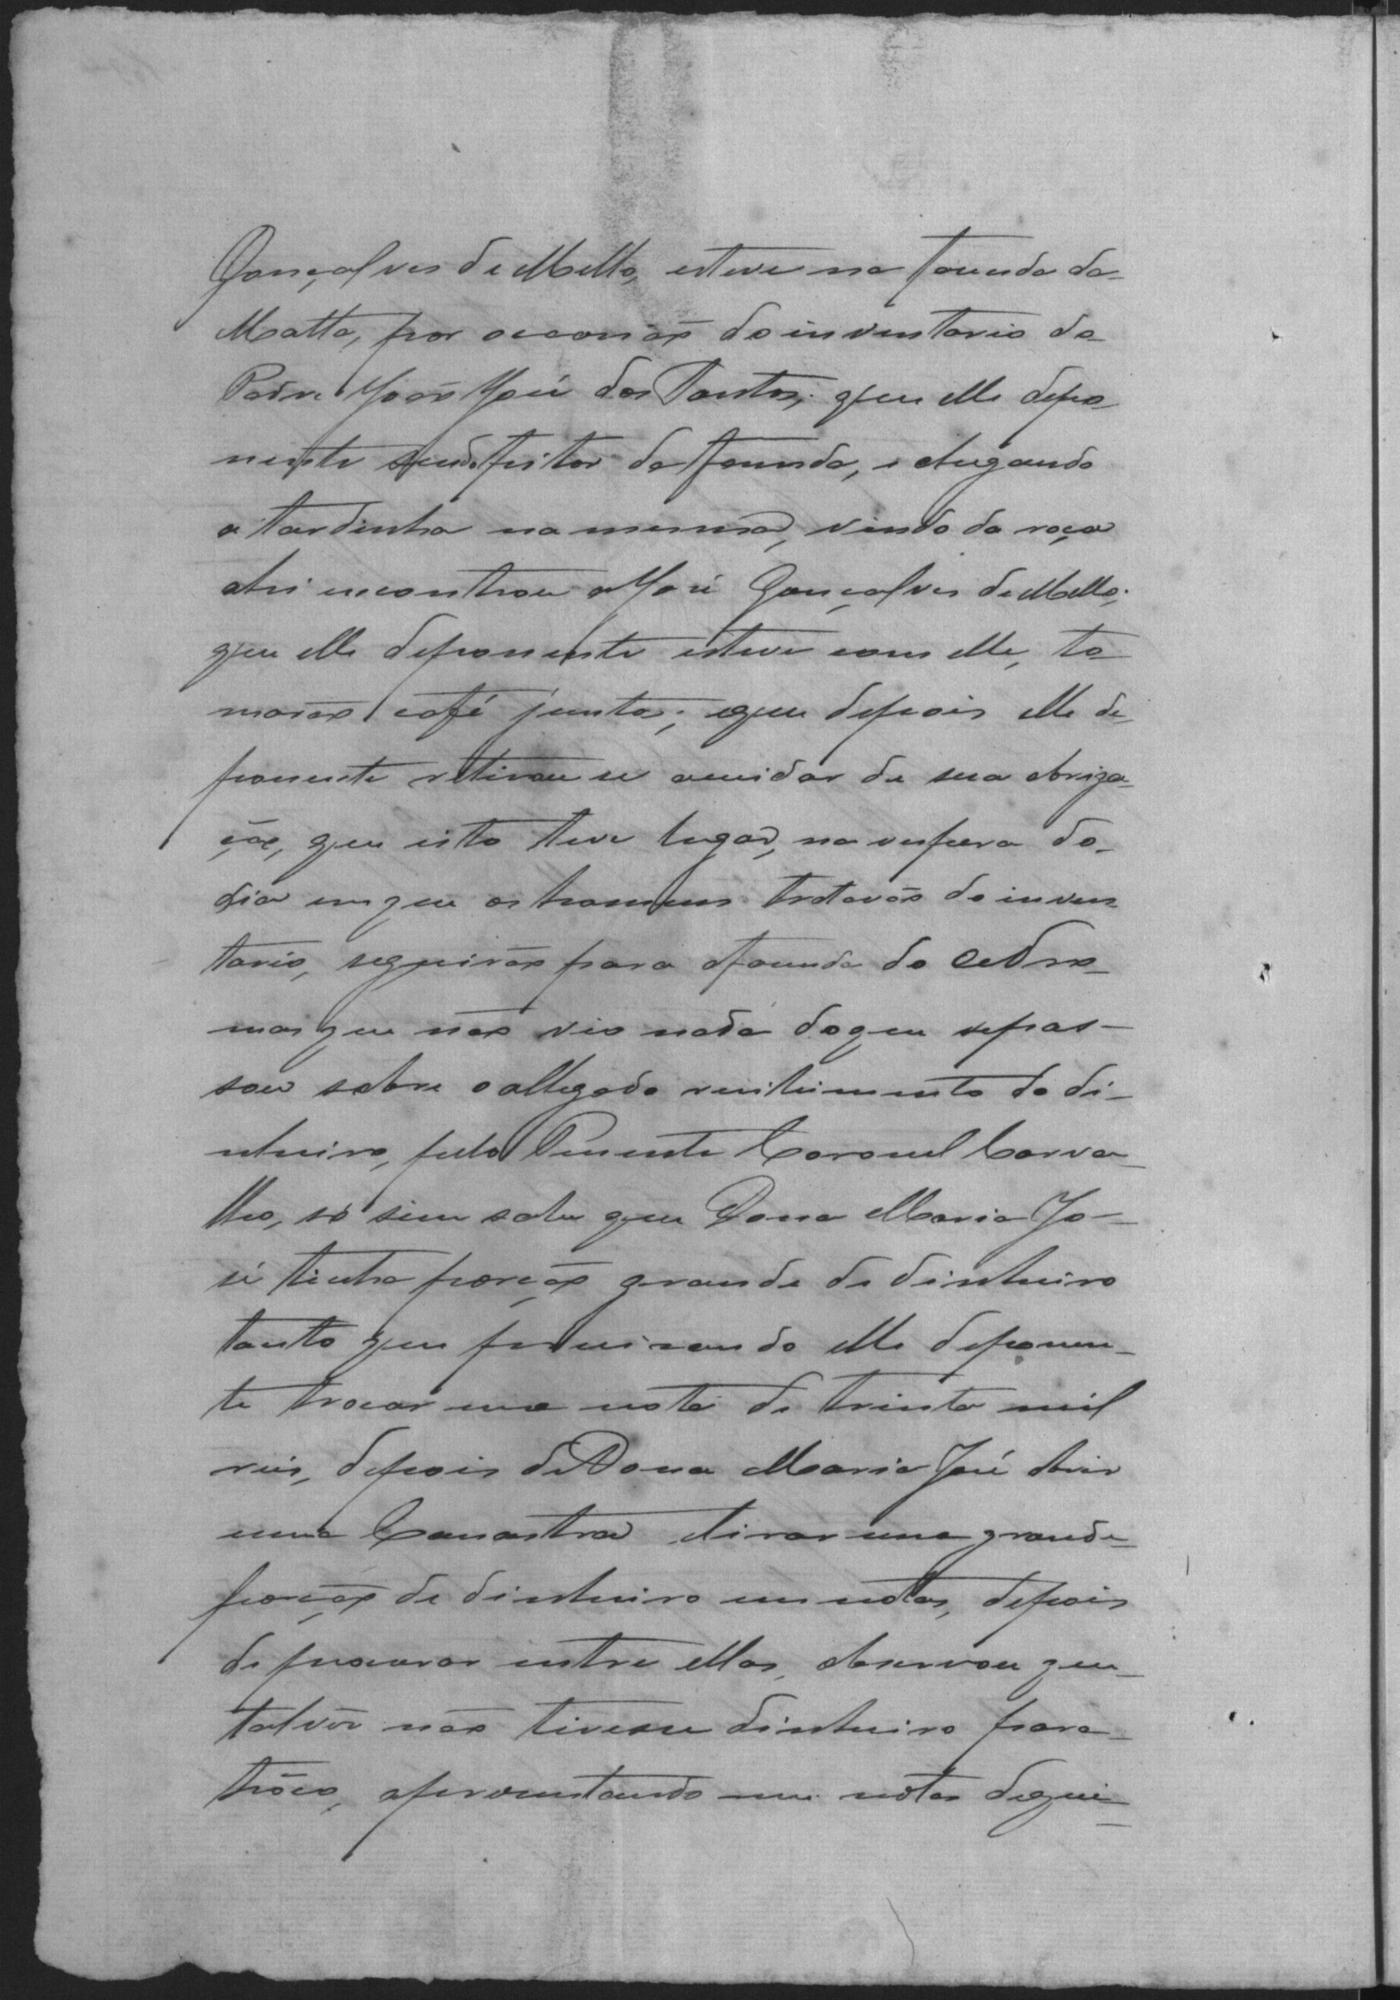 Gonçalves de Mello, esteve na fazenda da
Matta, por occasião do inventario do
Padre João José dos Santos; que elle depo
nente sendo feitor da fazenda, e chegando
a tardinha na mesma, vindo da roça
ahi encontrou a José Gonçalves de Mello;
que elle deponente esteve com elle, to
marão café junto; e que depois elle de
ponente retirou se a cuidar de sua obriga
ção, que isto teve lugar, na vespera do
dia em que os homens tratavão do inven
tario, seguirão para a fazenda do Cedro
mas que não vio nada do que se pas-
sou sobre o allegado recebimento do di-
nheiro, pelo Tenente Coronel Carva-
lho, só sim sabe que Dona Maria Jo-
sé tinha porção grande de dinheiro
tanto que precisando elle deponen-
te trocar uma nota de trinta mil
reis, depois de Dona Maria José abrir
uma Canastra e tirar uma grande
porção de dinheiro em notas, depois
de procurar entre ellas, observou que
talvez não tivesse dinheiro para
trôco, apresentando me notas de qui-